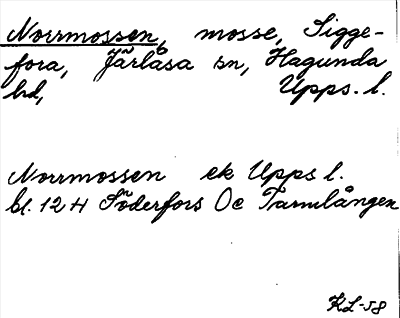 Norrmossen, mosse, Sigge-
fora, Järlåsa sn, Hagunda
hd, Upps. l.
Norrmossen ek Upps l.
bl. 12 H Söderfors Öc Tarmlången
KL-58